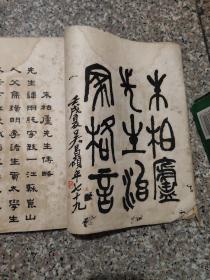 朱柏廬
先生治
家格言
壬戌夏吳昌碩年七十九
朱柏廬先生傳略
先生諱用純字致一江蘇崑山
人父集璜明季諸生貢太學生